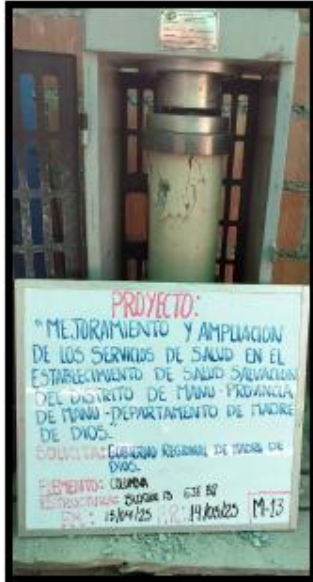 PROYECTO:
"MEJORAMIENTO Y AMPLIACION
DE LOS SERVICIOS DE SALUD EN EL
ESTABLECIMIENTO DE SALUD SALVACION
DEL DISTRITO DE MANU - PROVINCIA
DE MANU - DEPARTAMENTO DE MADRE
DE DIOS.
SOLICITA: GOBIERNO REGIONAL DE MADRE DE
DIOS.
ELEMENTO: COLUMNA
ESTRUCTURA: BLOQUE EJE
15/04/25 F.R.: 14/05/25 M-13